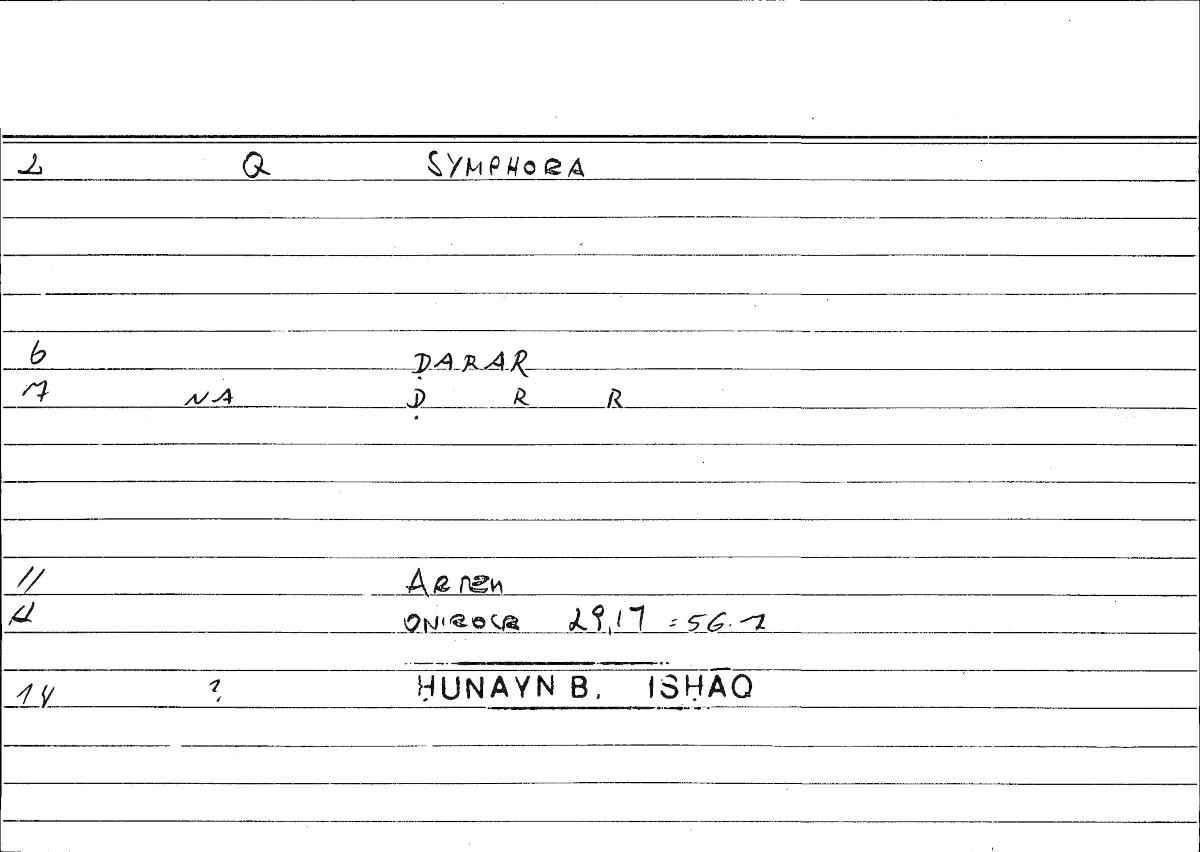 2 Q SYMPHORA
6 ḌARAR
7 NA Ḍ R R
11 ARTEM
12 ONIROCR 29,17 = 56.1
14 ? ḤUNAYN B. ISḤĀQ